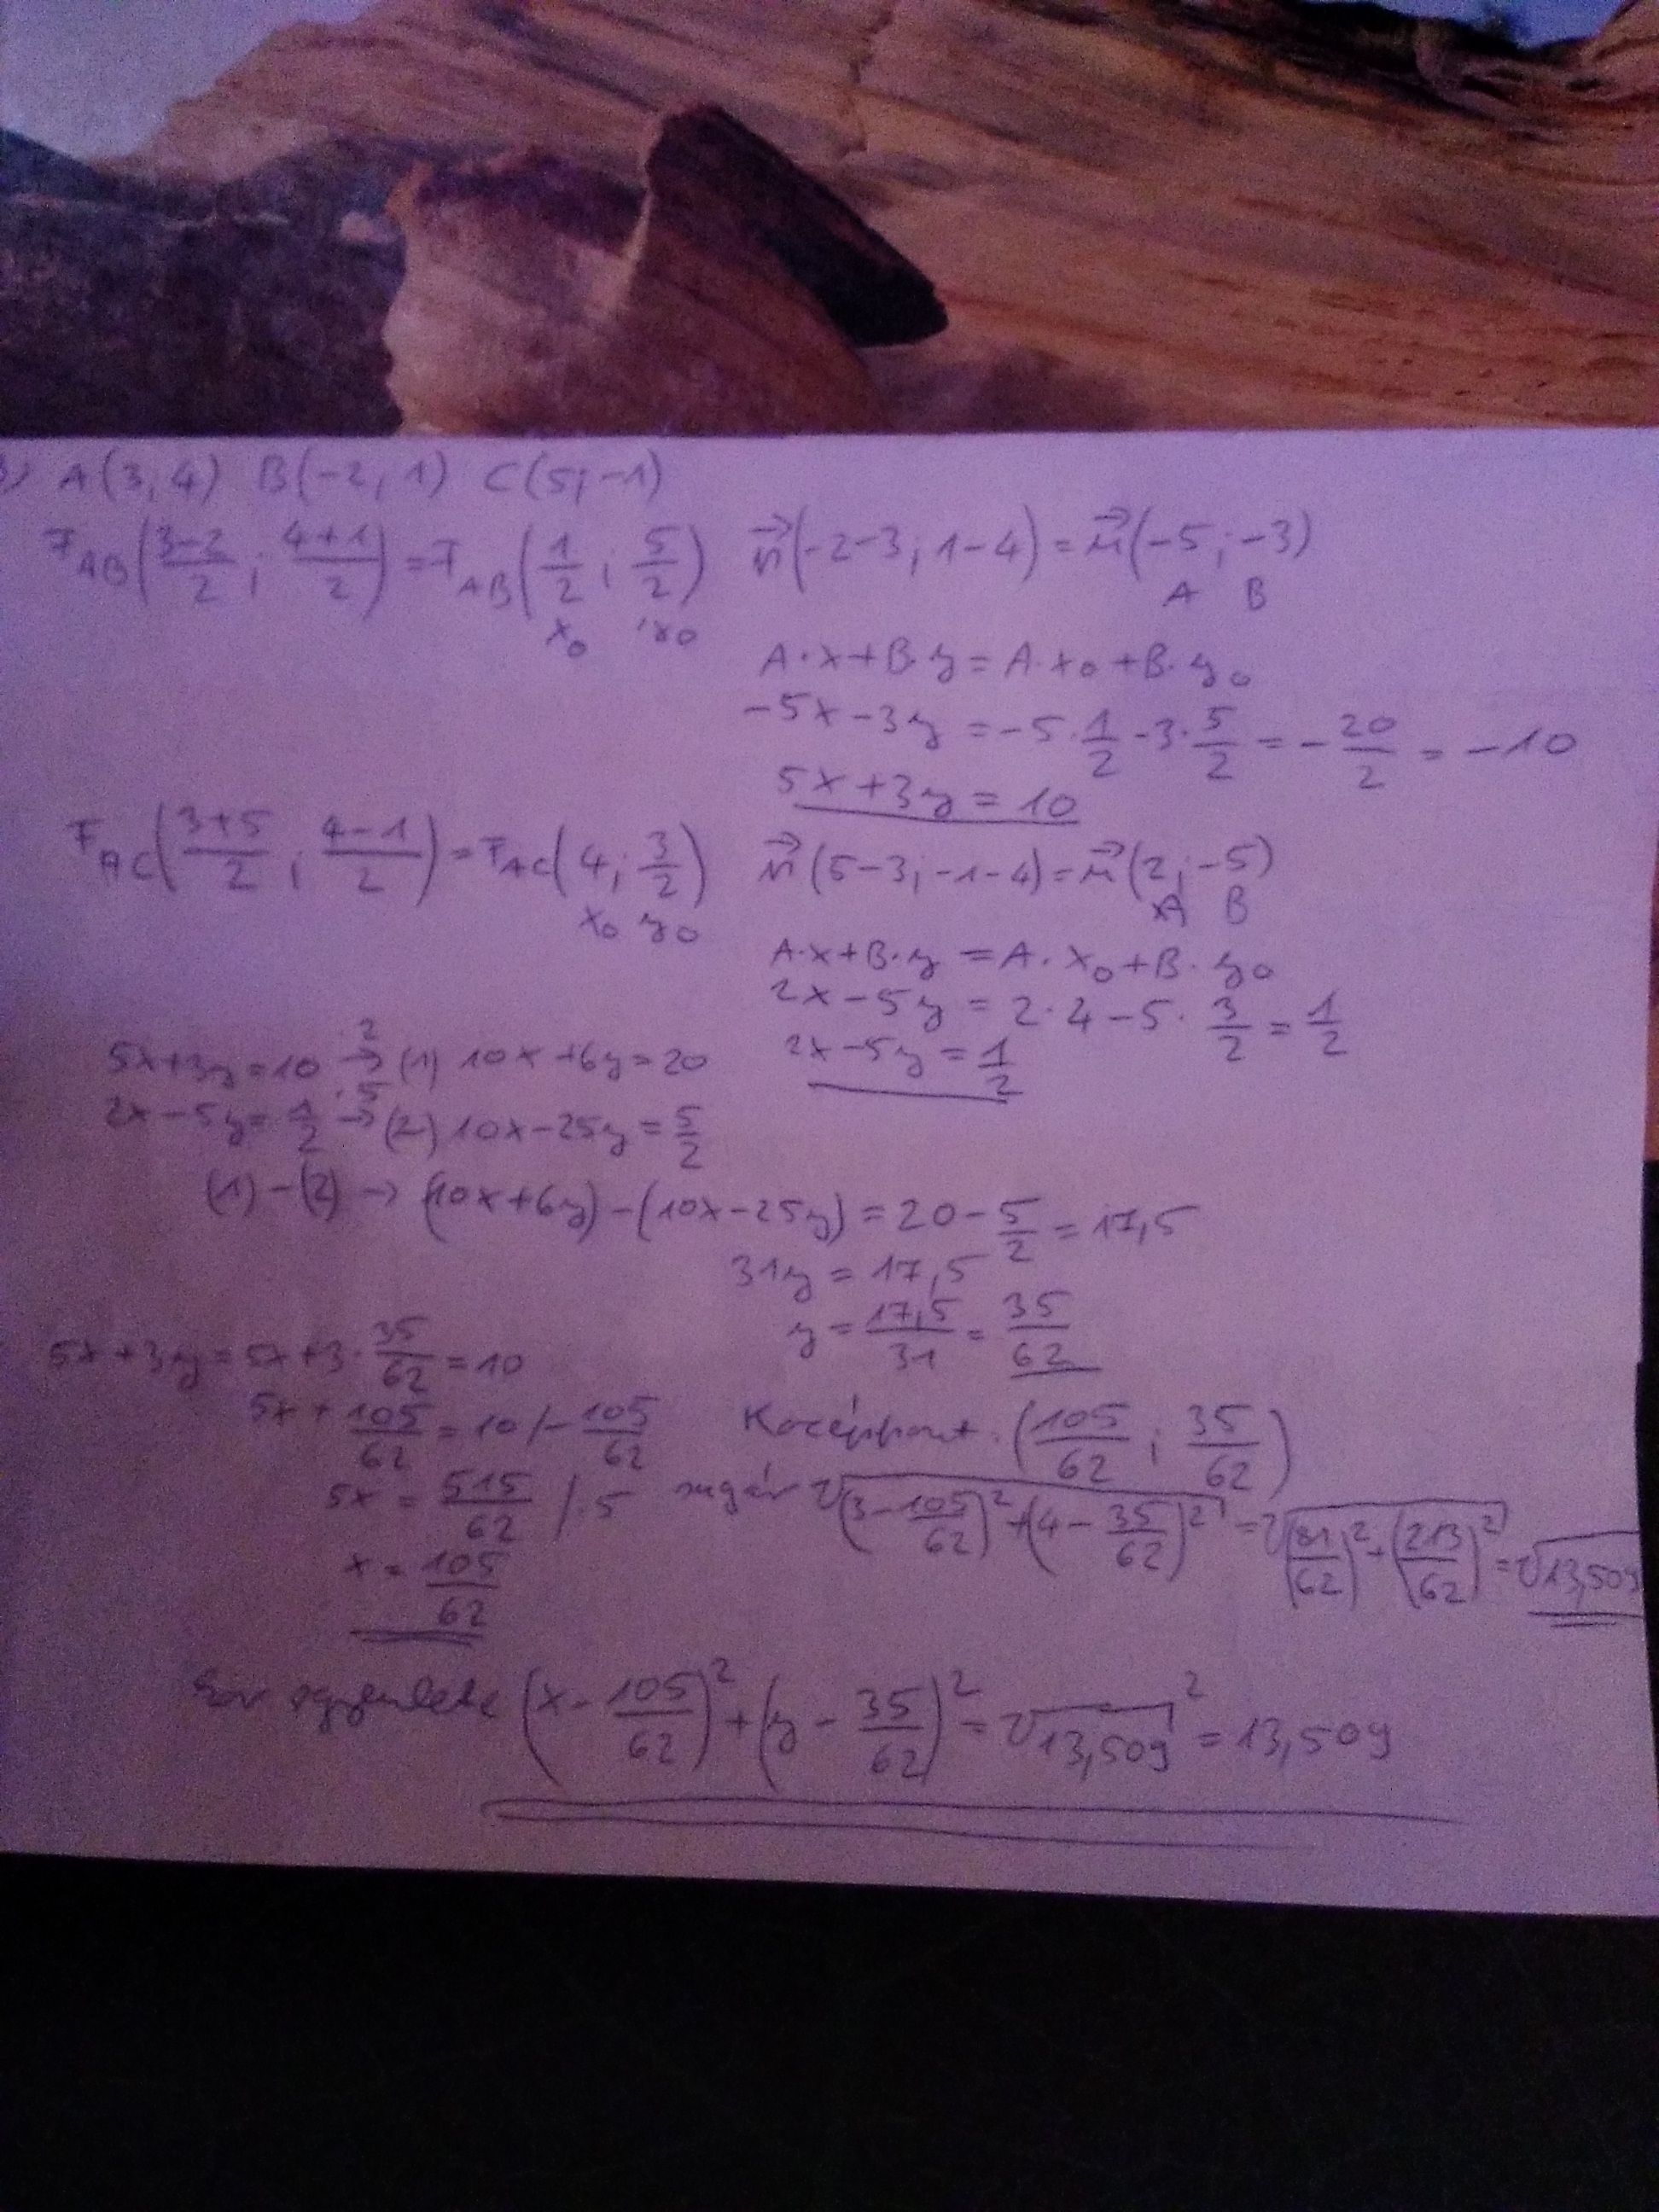 A(3;4) B(-2;1) C(5;-1)
F_AB((3-2)/2 ; (4+1)/2) = F_AB(1/2 ; 5/2) n⃗(-2-3; 1-4) = n⃗(-5; -3)
x₀ y₀ A B
A·x+B·y = A·x₀+B·y₀
-5x-3y = -5·1/2-3·5/2 = -20/2 = -10
5x+3y = 10
F_AC((3+5)/2 ; (4-1)/2) = F_AC(4; 3/2) n⃗(5-3; -1-4) = n⃗(2; -5)
x₀ y₀ A B
A·x+B·y = A·x₀+B·y₀
2x-5y = 2·4-5·3/2 = 1/2
2x-5y = 1/2
5x+3y=10 ·2→ (1) 10x+6y=20
2x-5y=1/2 ·5→ (2) 10x-25y=5/2
(1)-(2) → (10x+6y)-(10x-25y) = 20-5/2 = 17,5
31y = 17,5
y = 17,5/31 = 35/62
5x+3y = 5x+3·35/62 = 10
5x+105/62 = 10 /-105/62
5x = 515/62 /:5
x = 105/62
Középpont: (105/62 ; 35/62)
sugár √((3-105/62)²+(4-35/62)²) = √((81/62)²+(213/62)²) = √13,509
Kör egyenlete (x-105/62)²+(y-35/62)² = √13,509² = 13,509